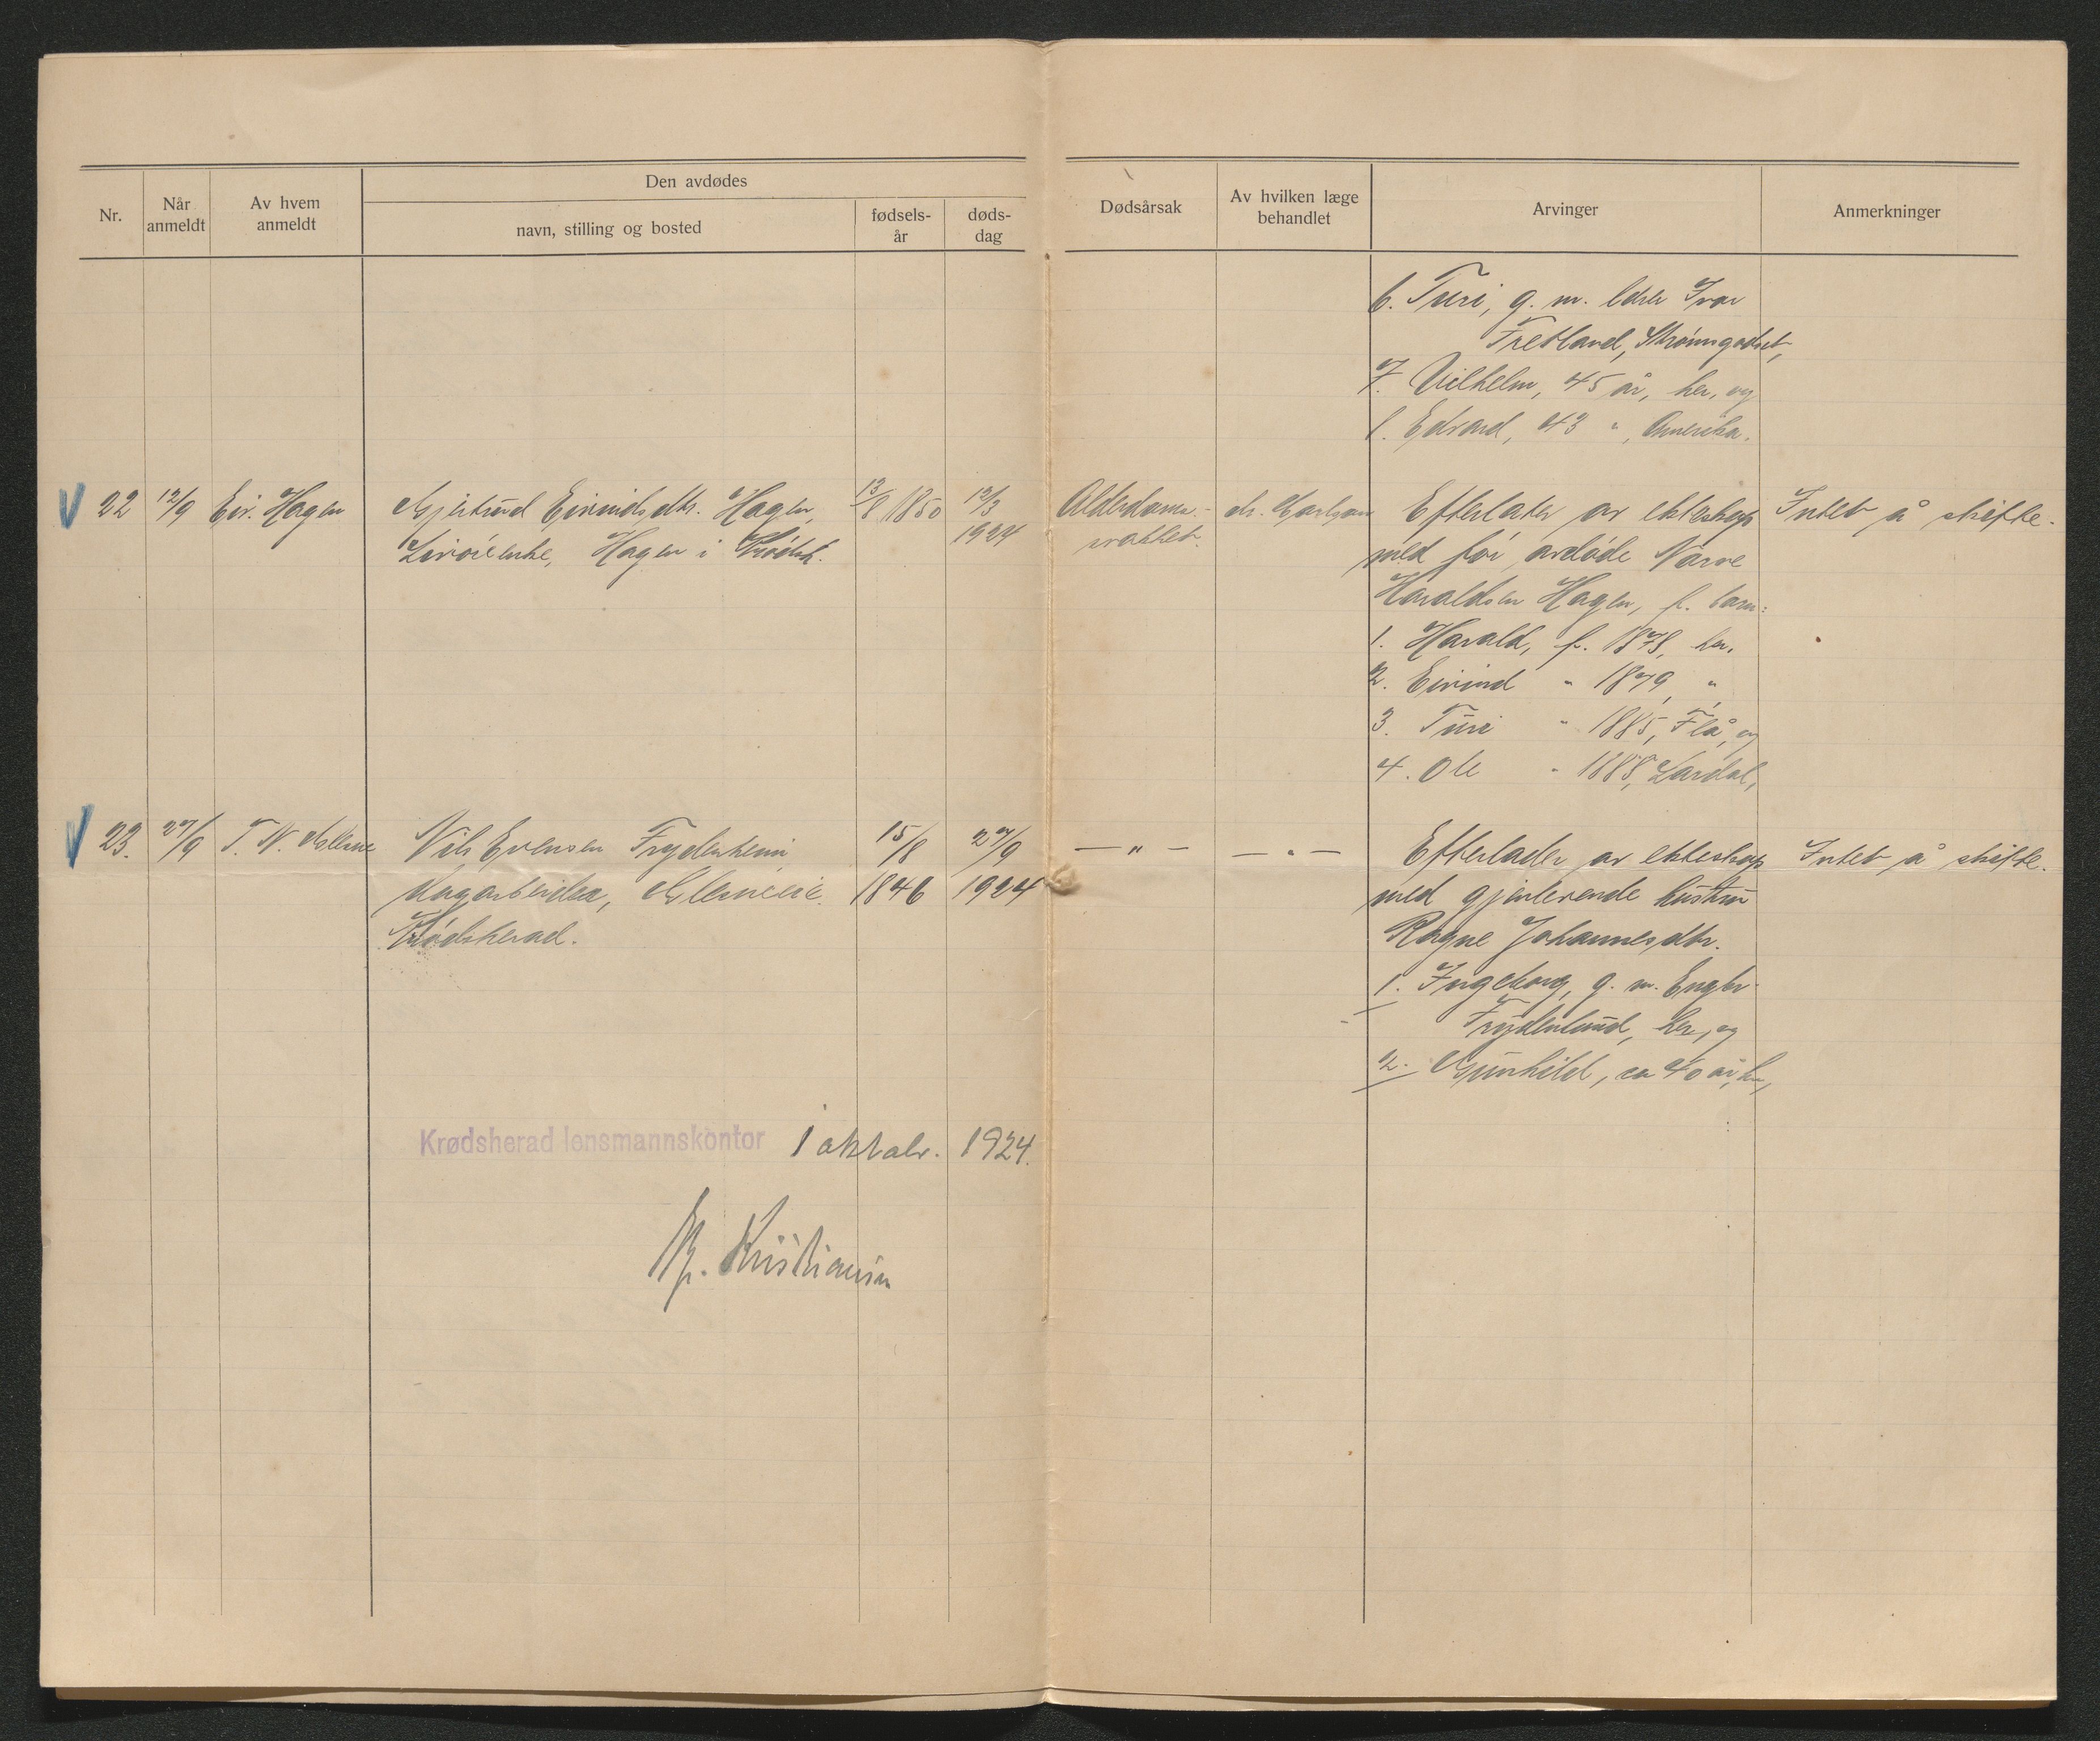 Nr.
Når anmeldt
Av hvem anmeldt
Den avdødes
navn, stilling og bosted
fødsels-år
døds-dag
Dødsårsak
Av hvilken læge behandlet
Arvinger
Anmerkninger
6. Turi, g. m. Ivar
Fretland, Strømgodset,
7. Vilhelm, 45 år, her, og
8. Edvard, 43 " , Amerika.
22 12/9 Eiv. Hagen
Gjertrud Eivindsdtr. Hagen,
Hagen i Krødsh.
13/8 1850
12/3
1924
Alderdoms-
svakket.
dr.
Efterlater av ekteskap
med før avdøde Narve
Haraldsen Hagen, f. barn:
1. Harald, f. 1878, her.
2. Eivind " 1879, "
3. Turi " 1885, Flå, og
4. Ole " 1888, Lardal,
Intet å skifte.
23. 27/9 T. N.
Nils Evensen Frydenheim
Krødsherad.
15/8
1846
27/9
1924
— " —
— " —
Efterlader av ekteskap
med gjenlevende hustru
Ragne Johannesdtr.
1. Ingeborg, g. m.
Frydenlund, her, og
2. Gunhild, ca 40 år, her,
Intet å skifte.
Krødsherad lensmannskontor 1 oktobr. 1924.
Kristiansen